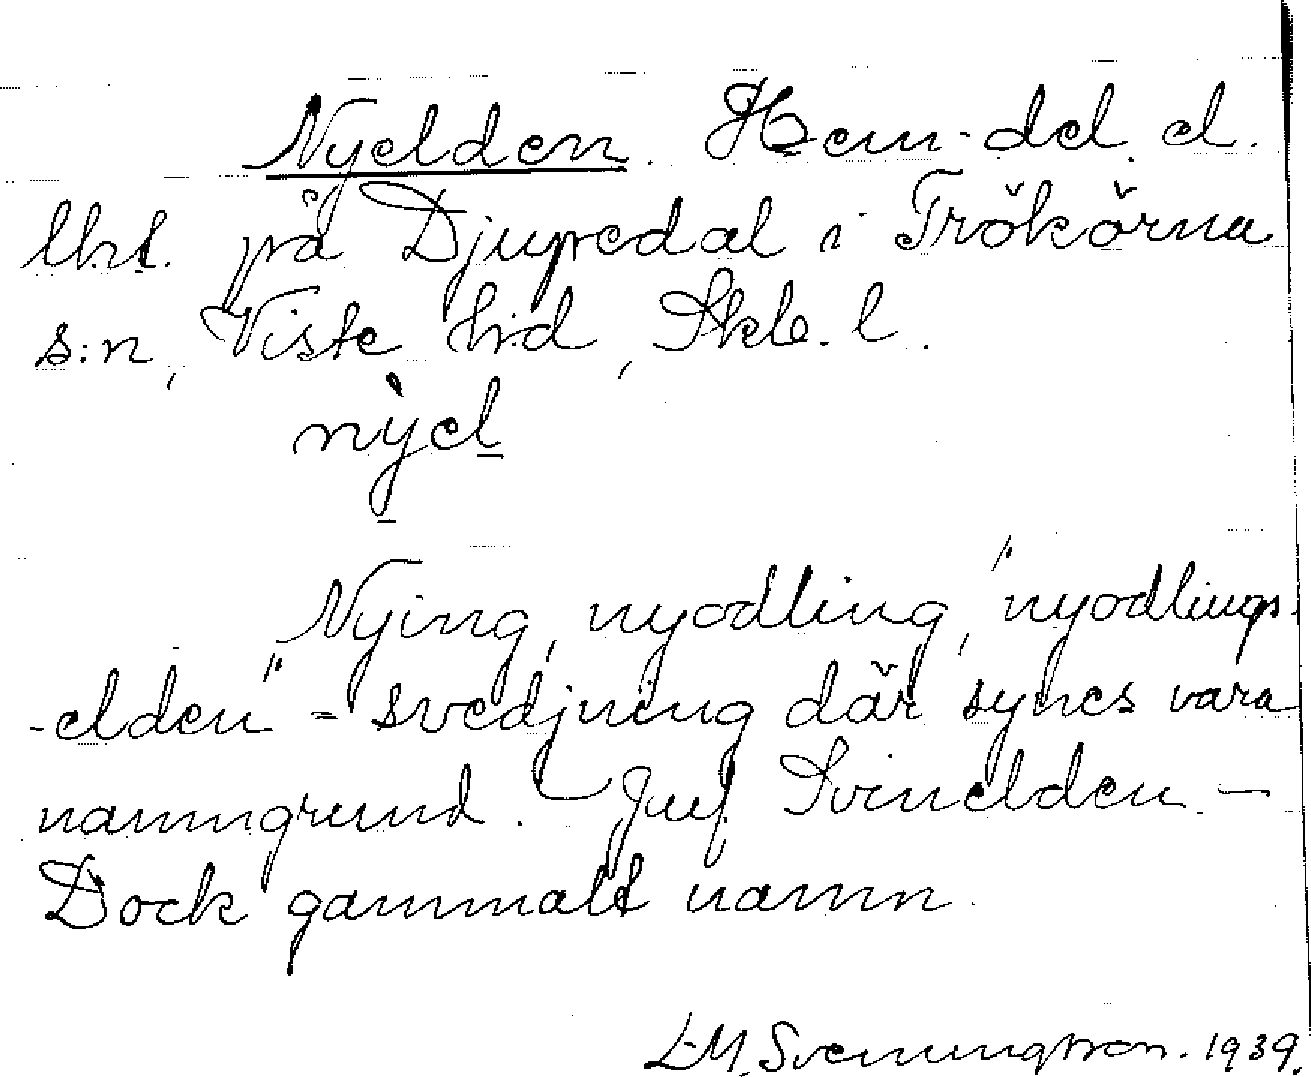 Nyelden. Hem-del el.
lht. på Djupedal i Trökörna
s:n, Viste hrd, Skb. l.
nỳel
Nying, nyodling, "nyodlings-
-elden" - svedjning där synes vara
namngrund. - Jmf. Svinelden -
Dock gammalt namn.
L-M. Svenungsson. 1939.